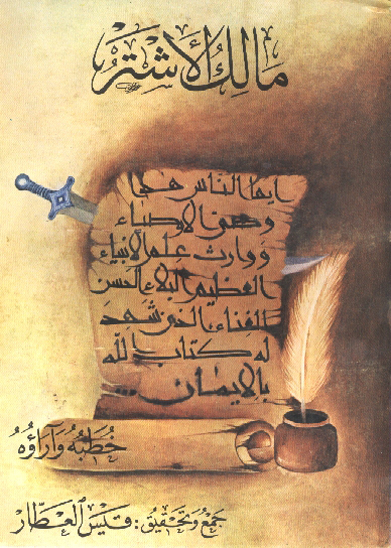 مَالِكُ الأَشْتَرْ
ايها الناس هذا
وصي الاوصياء
ووارث علم الانبياء
العظيم البلاء الحسن
الغناء الذي شهد
له كتاب الله
بالايمان...
خُطَبُهُ وَآرَاؤُهُ
جَمْعُ وَتَحْقِيقُ : قَيْسُ العَطَّار